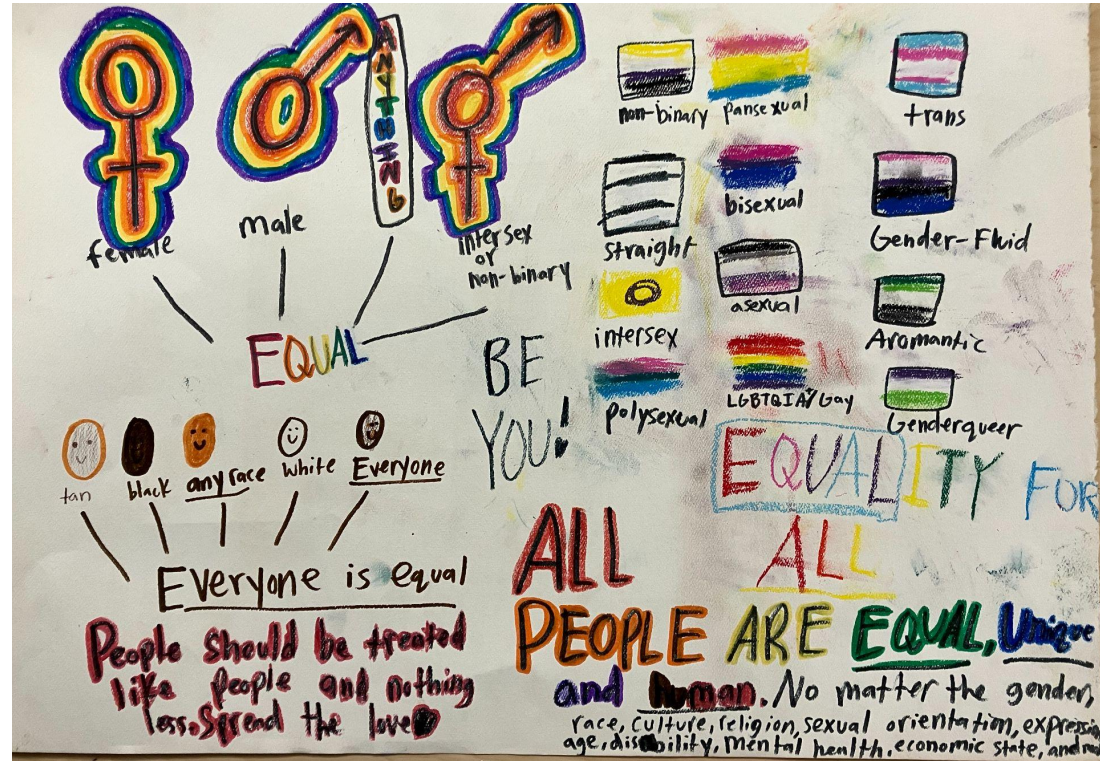 female
male
ANYTHING
intersex
or
non-binary
EQUAL
tan
black
any race
white
Everyone
Everyone is equal
People should be treated
like people and nothing
less. Spread the love
BE
YOU!
non-binary
pansexual
trans
straight
bisexual
Gender-Fluid
intersex
asexual
Aromantic
polysexual
LGBTQIA+/Gay
Genderqueer
EQUALITY FOR
ALL
ALL
PEOPLE ARE EQUAL, Unique
and human. No matter the gender,
race, culture, religion, sexual orientation,
age, disability, mental health, economic state, and